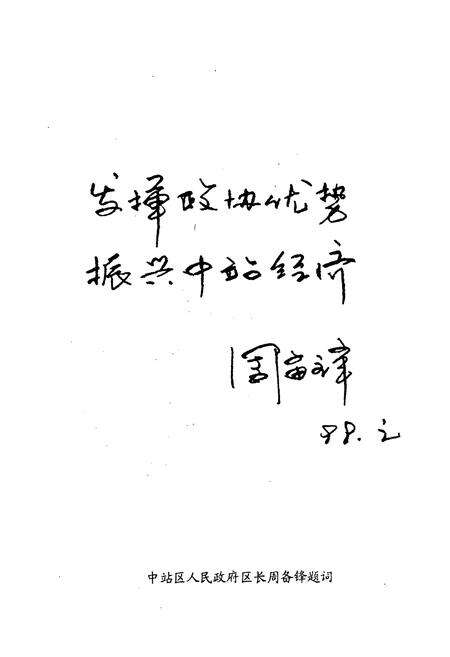 发挥政协优势
振兴中站经济
周
中站区人民政府区长周备锋题词